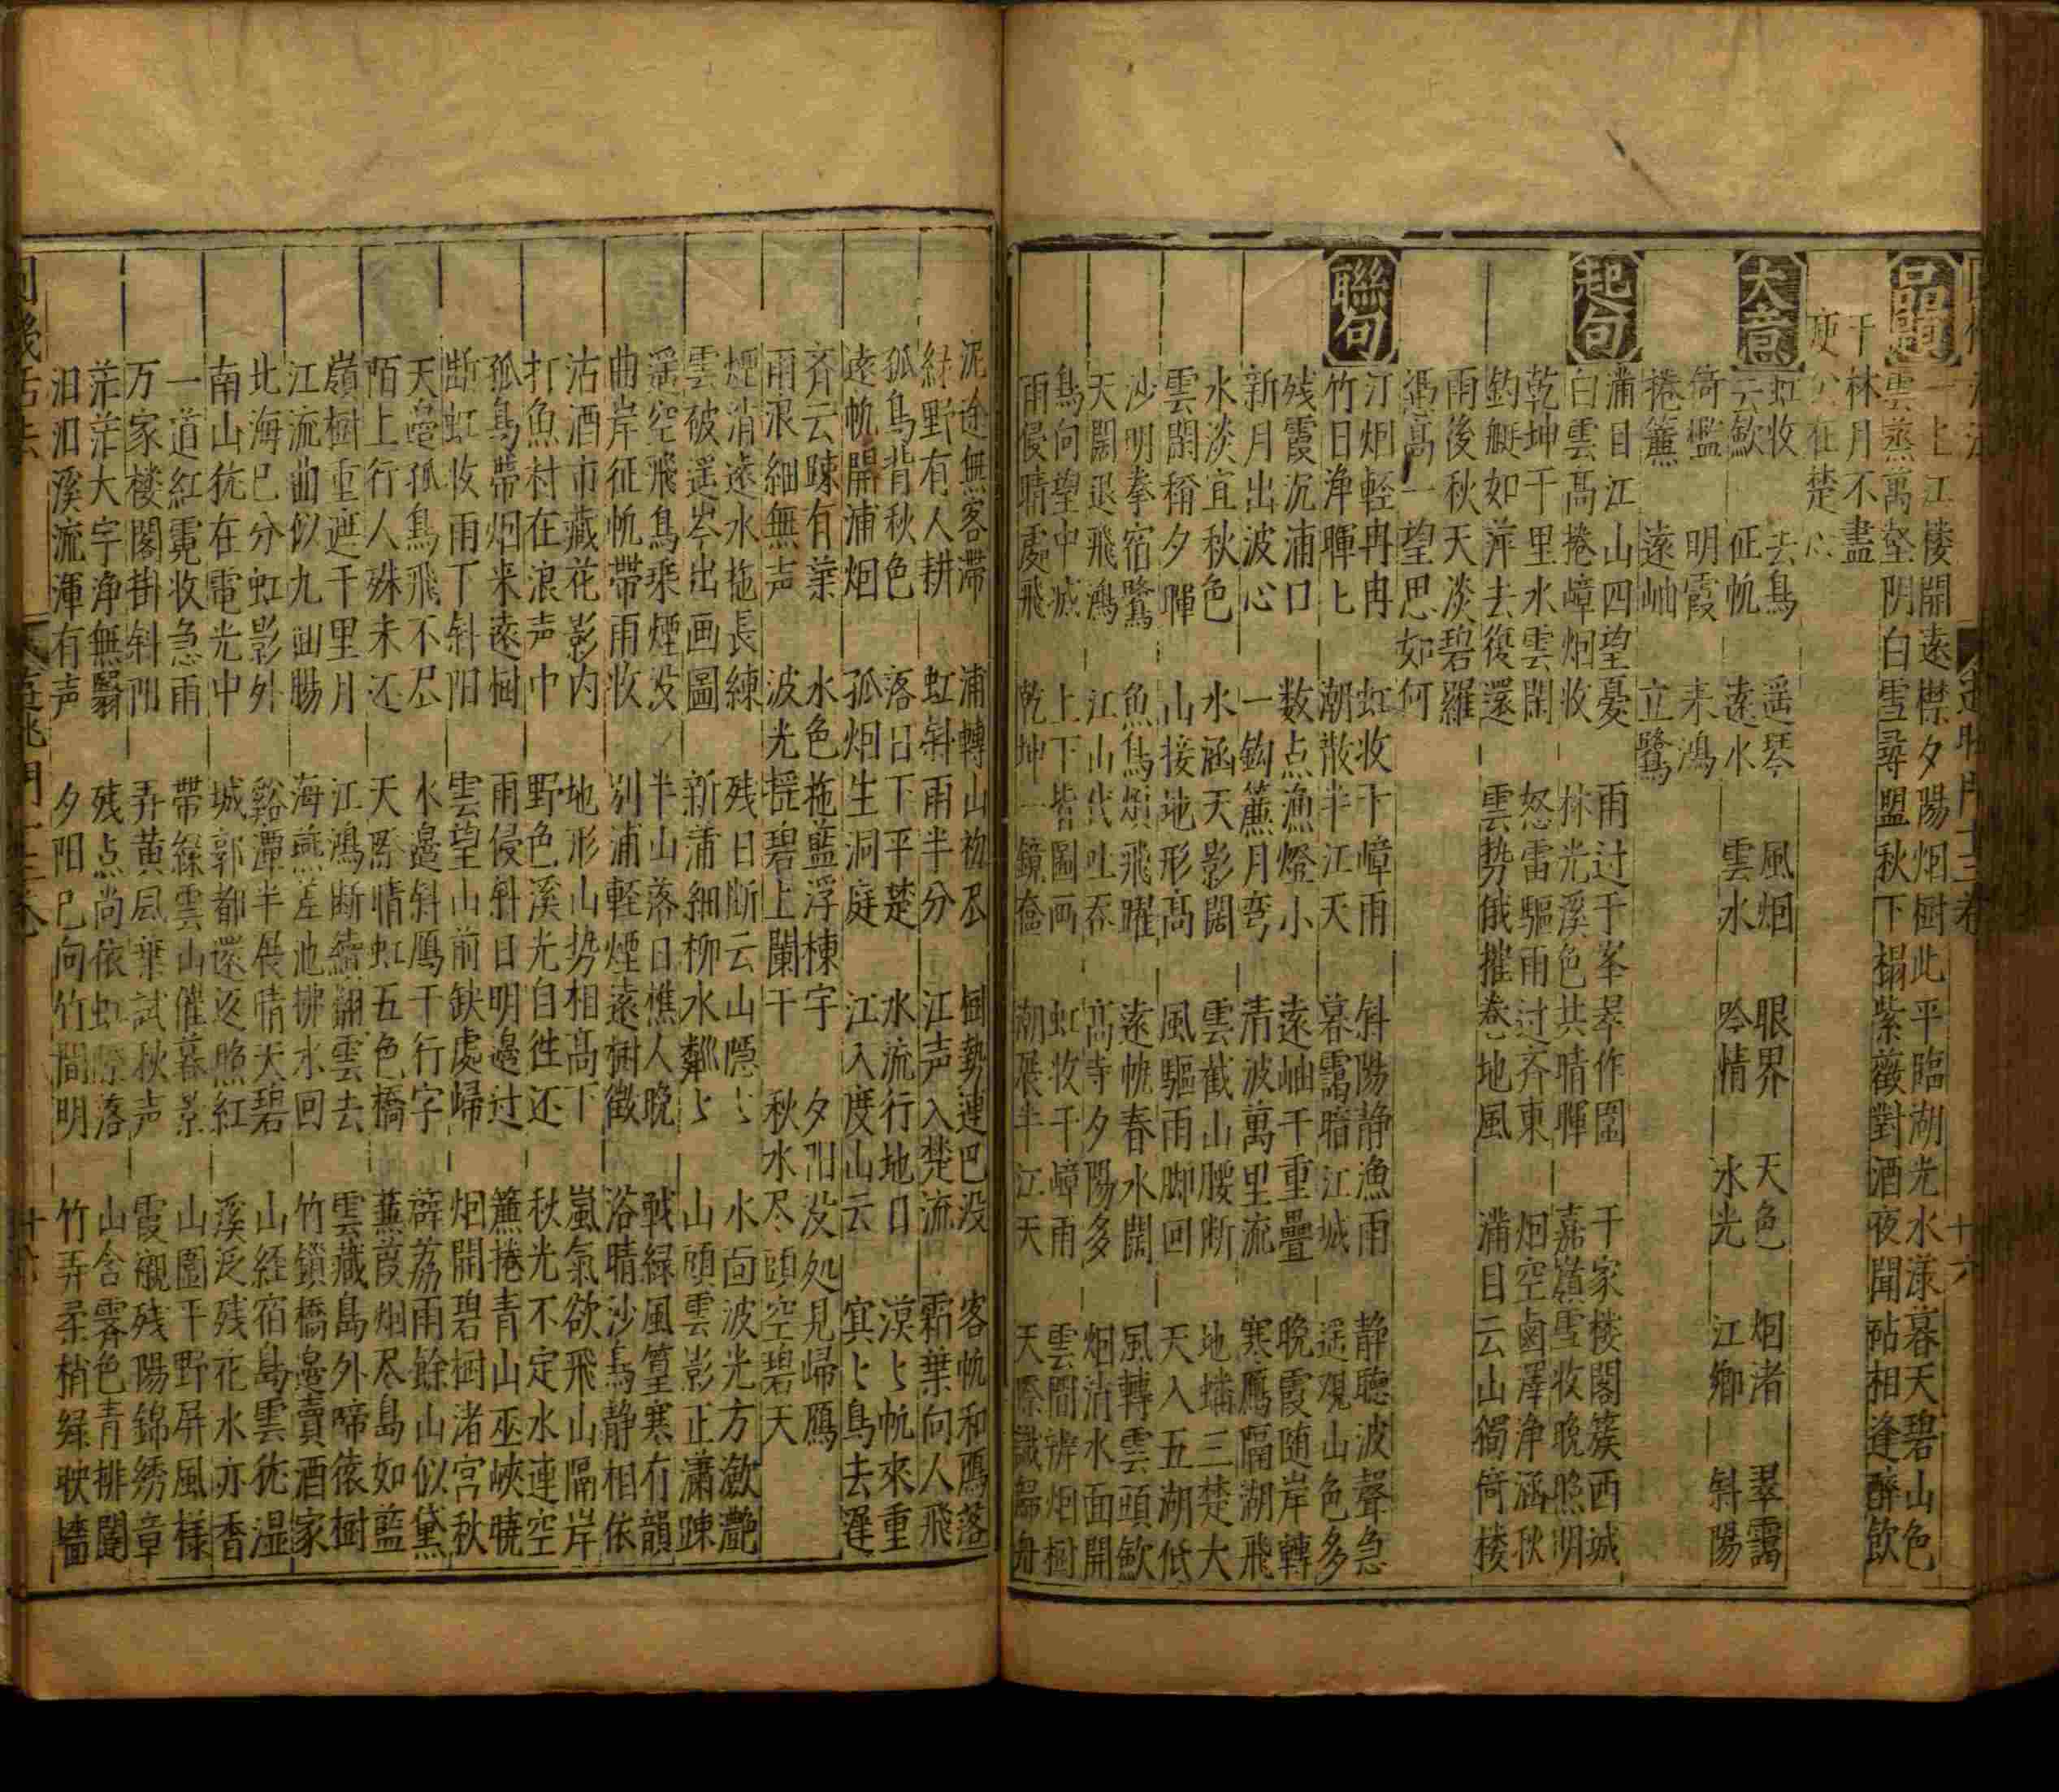 品題
一上江楼開遠襟夕陽烟樹此平臨湖光水漾暮天碧山色
雲蒸萬壑陰白雪尋盟秋下榻紫薇對酒夜聞砧相逢醉飲
千林月不盡
在楚
大意
虹收 去鳥 遥岑 風烟 眼界 天色 烟渚 翠靄
云歛 征帆 遠水 雲水 吟情 水光 江鄉 斜陽
倚檻 明霞 来鴻
捲簾 遠岫 立鷺
起句
滿目江山四望憂 雨过千峯翠作圍 千家楼閣簇西城
白雲高捲嶂烟收 林光溪色共晴暉 嘉嶺雪收晚照明
乾坤千里水雲閑 怒雷驅雨过齐東 烟空鹵澤浄涵秋
釣艇如萍去復還 雲势俄摧卷地風 滿目云山獨倚楼
雨後秋天淡碧羅
馮高一望思如何
聯句
汀烟輕冉冉 虹收千嶂雨 斜陽静漁雨 静聴波聲急
竹日浄暉匕 潮散半江天 暮靄暗江城 遥現山色多
残霞沉浦口 数点漁燈小 遠岫千重疊 晚霞随岸轉
新月出波心 一鈎簾月弯 清波萬里流 寒鴈隔湖飛
水淡宜秋色 水涵天影闊 雲截山腰断 地蟠三楚大
雲閑稱夕暉 山接地形高 風驅雨脚回 天入五湖低
沙明拳宿鷺 魚鳥煩飛躍 遠帆春水闊 風轉雲頭歛
天闊退飛鴻 江山代吐吞 高寺夕陽多 烟消水面開
鳥向望中滅 上下皆圖画 虹收千嶂雨 雲間辨烟樹
雨侵晴處飛 乾坤一鏡奩 潮展半江天 天際識歸舟
泥途無客滯 浦轉山初尽 樹勢連巴没 客帆和鴈落
紂野有人耕 虹斜雨半分 江声入楚流 霜葉向人飛
孤鳥背秋色 落日下平楚 水流行地日 漠匕帆來重
遠帆開浦烟 孤烟生洞庭 江入度山云 冥匕鳥去遲
齐云踈有葉 水色拖藍浮棟宇 夕阳没処見归鴈
雨浪細無声 波光揺碧上闌干 秋水尽頭空碧天
煙消遠水拖長練 残日断云山隠匕 水面波光方潋灧
雲破遥岑出画圖 新蒲細柳水粼匕 山頭雲影正蕭踈
遥空飛鳥乘煙没 半山落日樵人晚 戟緑風篁寒有韻
曲岸征帆帶雨收 别浦輕煙遠樹微 浴晴沙鳥静相依
沽酒市藏花影内 地形山势相高下 嵐氣欲飛山隔岸
打魚村在浪声中 野色溪光自徃还 秋光不定水連空
孤鳥帶烟来遠樹 雨侵斜日明邉过 簾捲青山巫峽暁
断虹收雨下斜阳 雲望山前缺處帰 烟開碧樹渚宮秋
天邉孤鳥飛不尽 水邉斜鴈千行字 薜荔雨餘山似黛
陌上行人殊未还 天際晴虹五色橋 蒹葭烟尽島如藍
嶺樹重遮千里月 江鴻断續翻雲去 雲藏島外啼猿樹
江流曲似九囬腸 海燕差池拂水回 竹鎖橋邉賣酒家
北海已分虹影外 谿潭半展晴天碧 山経宿島雲犹湿
南山犹在電光中 城郭都還返照紅 溪泛残花水亦香
一道紅霓收急雨 帶緑雲山催暮景 山圍平野屏風様
万家楼閣掛斜阳 弄黄風葉試秋声 霞襯残陽錦綉章
茫茫大宇浄無翳 残点尚依虹際落 山含霽色青排闥
汩汩溪流渾有声 夕阳已向竹間明 竹弄柔梢緑映墻